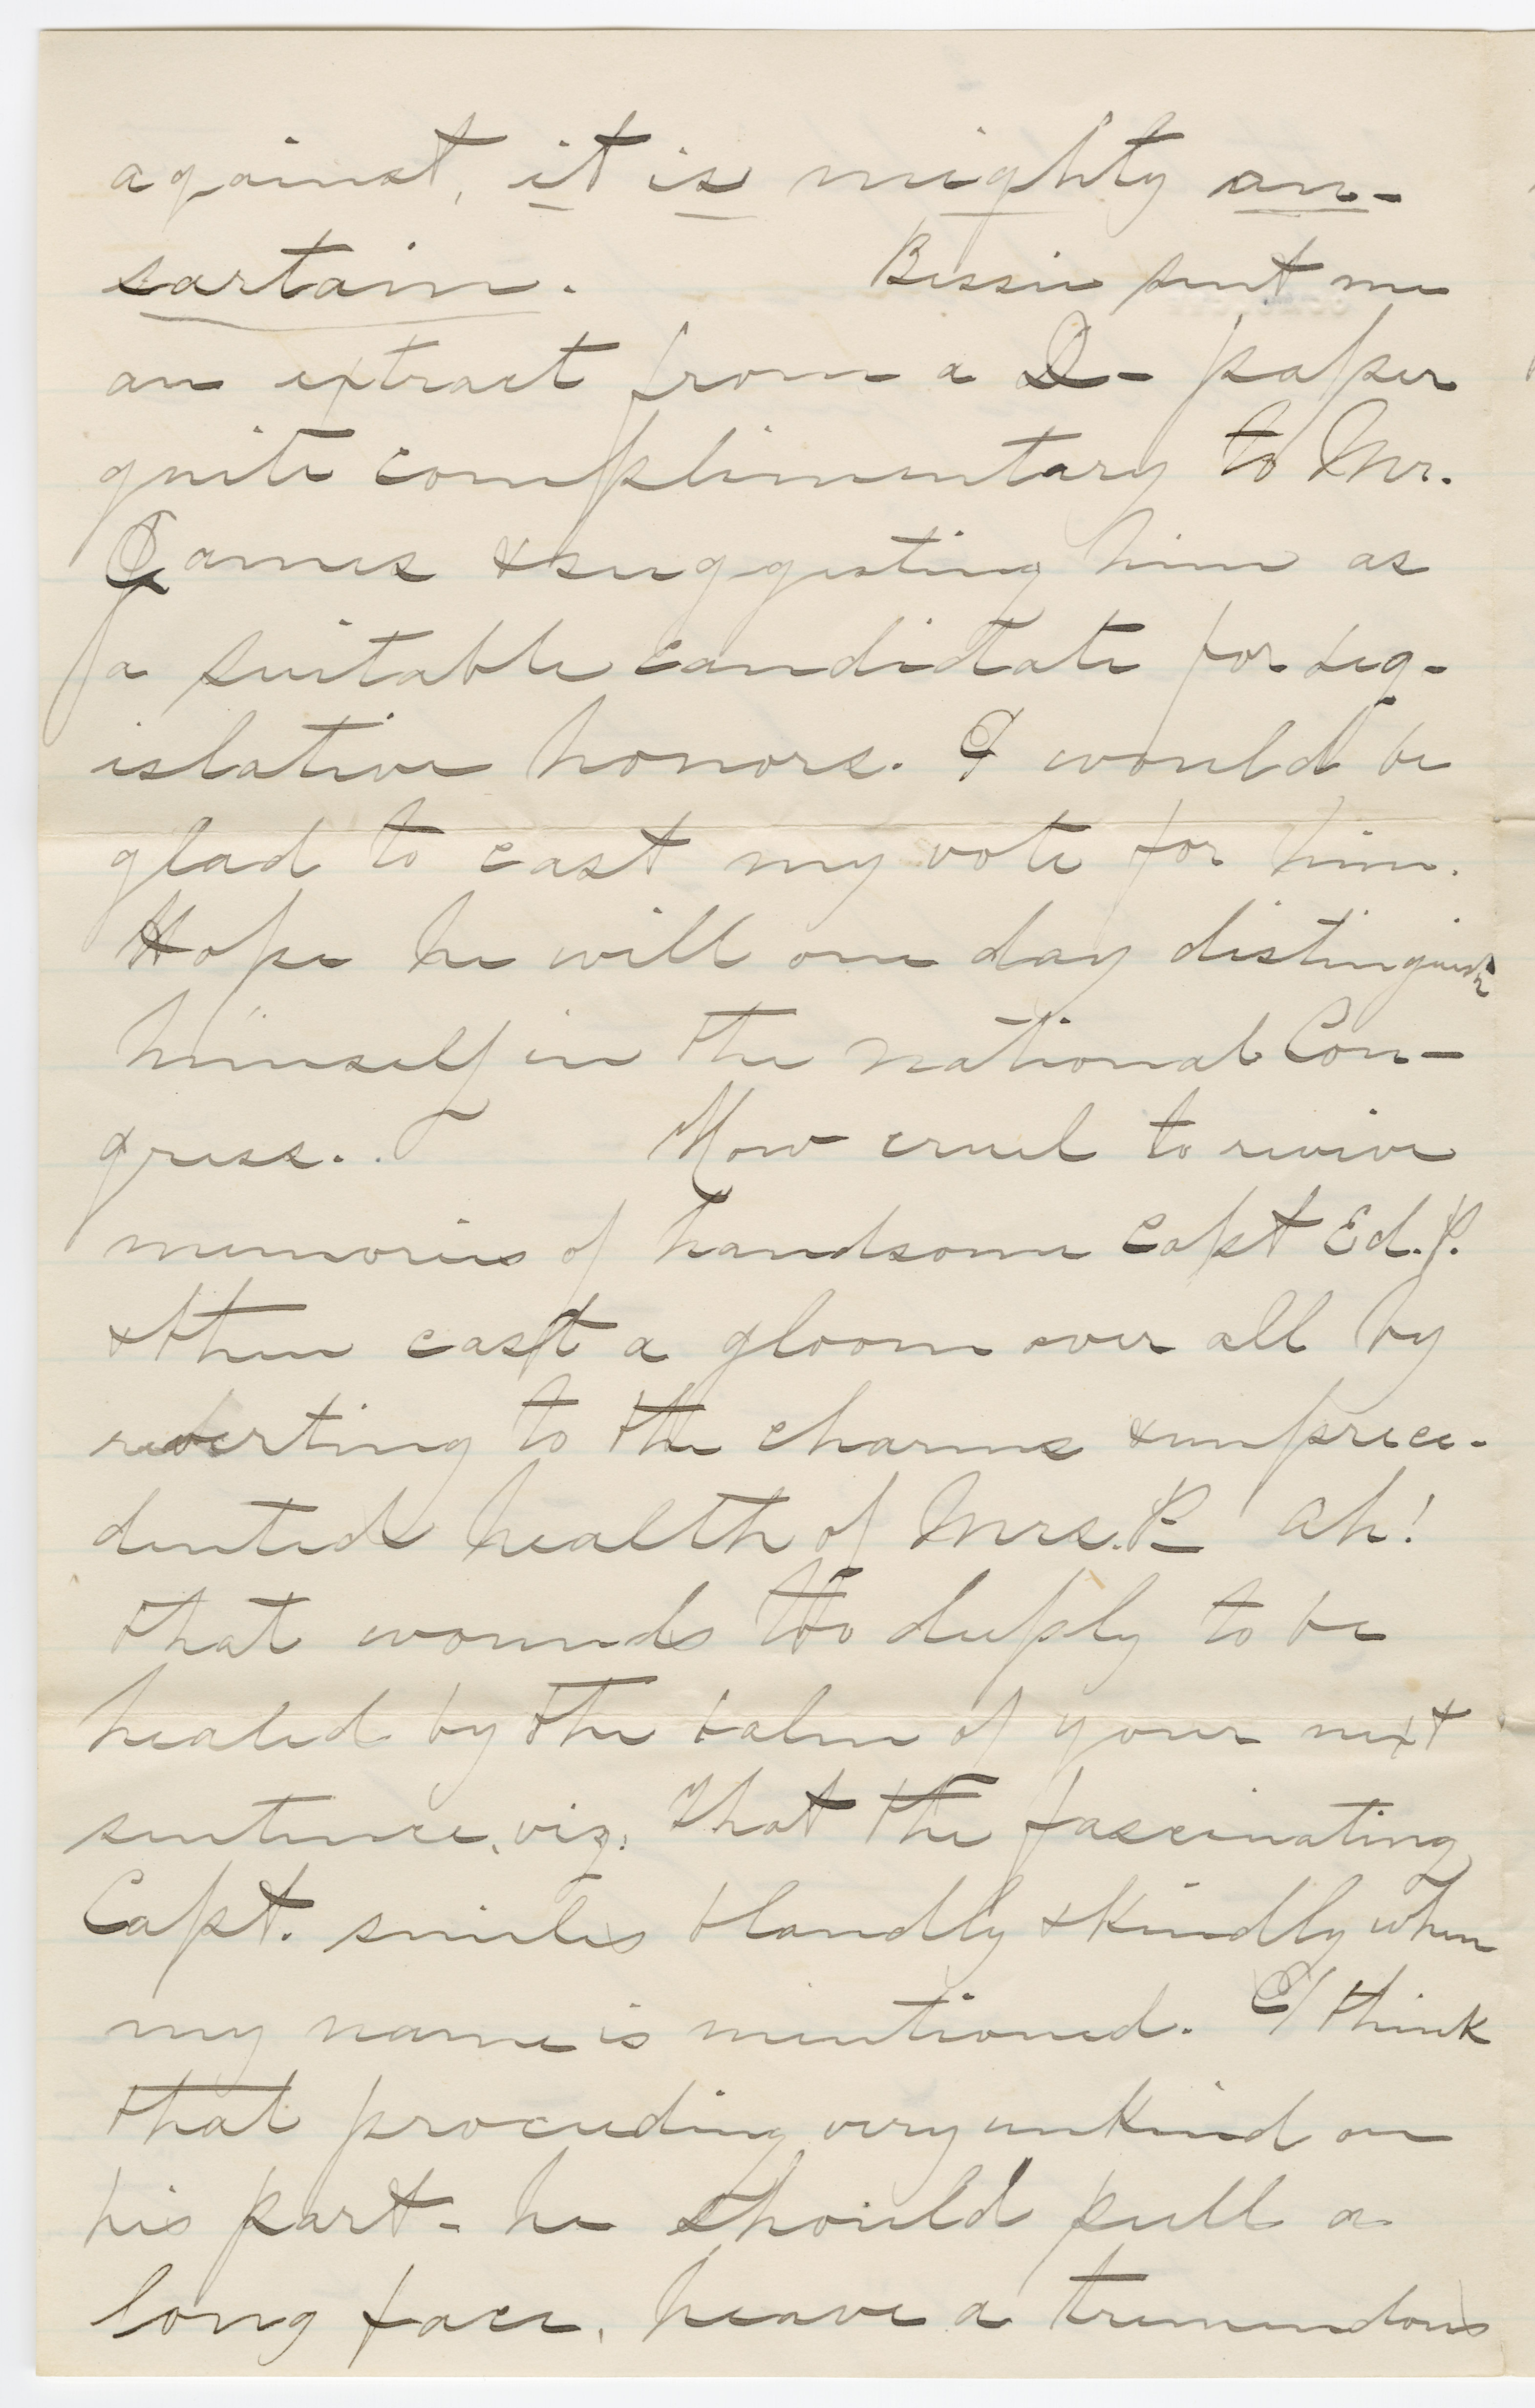 against, it is mighty on-
sartain. Bessie sent me
an extract from a D- paper
quite complimentary to Mr.
James & suggesting him as
a suitable candidate for leg-
islative honors. I would be
glad to cast my vote for him.
Hope he will one day distinguish
himself in the national Con-
gress. How cruel to revive
memories of handsome Capt Ed. P.
& then cast a gloom over all by
reverting to the charms & unprece-
dented health of Mrs. P- Ah!
that wounds too deeply to be
healed by the balm of your next
sentence, viz: that the fascinating
Capt. smiles blandly & kindly when
my name is mentioned. I think
that proceeding very unkind on
his part - he should pull a
long face, heave a tremendous